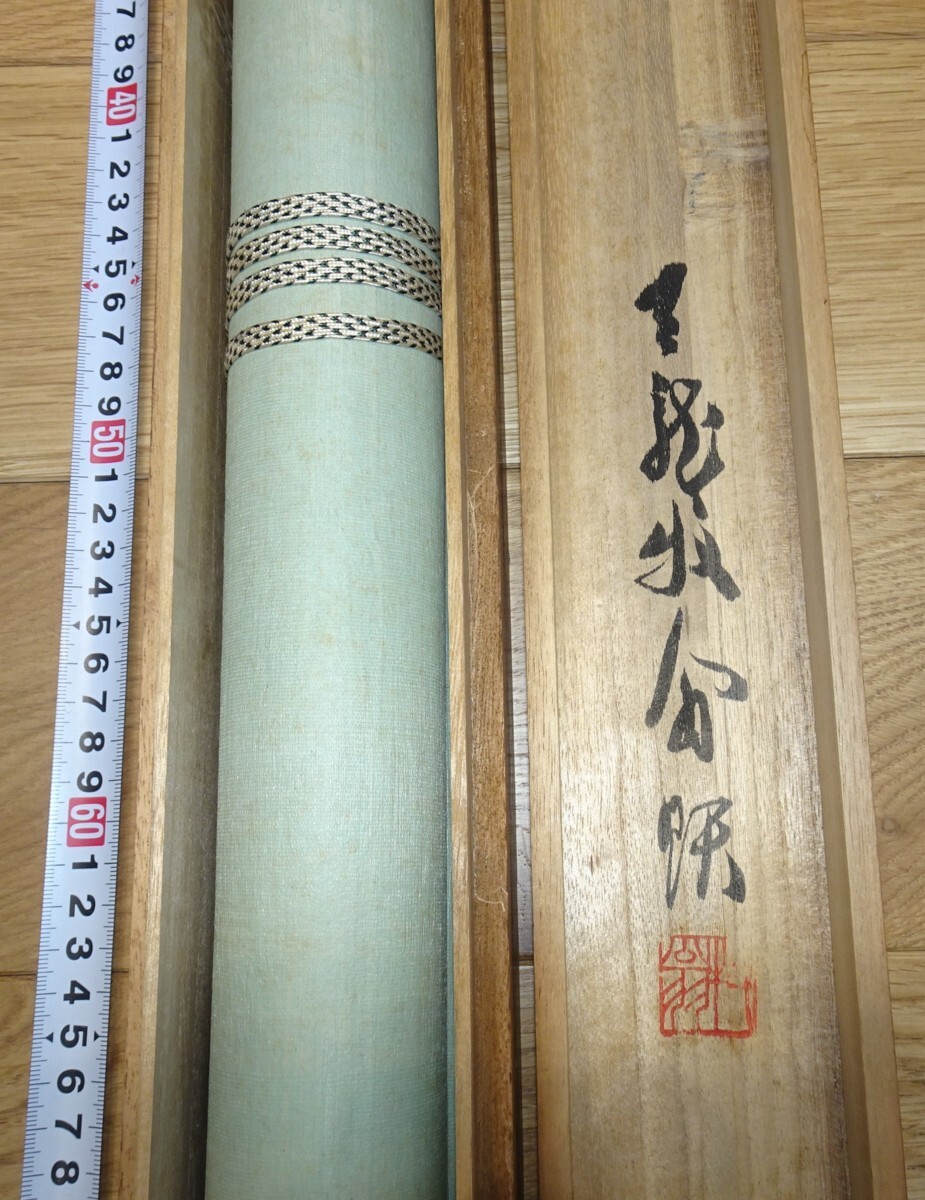 7
8
9
40
1
2
3
4
5
6
7
8
9
50
1
2
3
4
5
6
7
8
9
60
1
2
3
4
5
6
7
8
天龍牧翁
牧翁